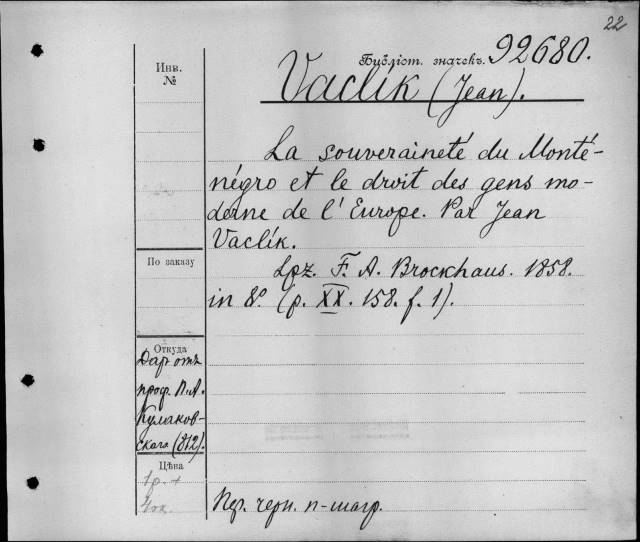 22
Библіот. значекъ. 92680.
Инв.
№
Vaclík (Jean).
La souveraineté du Monté-
négro et le droit des gens mo-
derne de l'Europe. Par Jean
Vaclík.
По заказу
Lpz. F. A. Brockhaus. 1858.
in 8º. (p. XX. 158. f. 1).
Откуда
Даръ отъ
проф. П. А.
Кулаков-
скаго (812).
Цѣна
1р. +
Пер. черн. п-шагр.